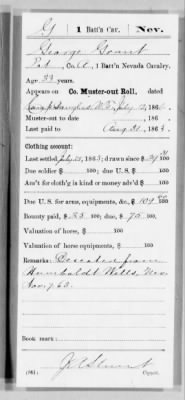 G | 1 Batt'n Cav. | Nev.
George Grant
Pvt., Co. C, 1 Batt'n Nevada Cavalry.
Age 33 years.
Appears on Co. Muster-out Roll, dated
Camp Douglas U.T. July 12, 1866.
Muster-out to date , 186 .
Last paid to Aug 31, 1863.
Clothing account:
Last settled July 25, 1863; drawn since $
Due soldier $ ; due U.S. $
Am't for cloth'g in kind or money adv'd $
Due U.S. for arms, equipments, &c., $
Bounty paid $ 25 ; due $ 75
Valuation of horse, $
Valuation of horse equipments, $
Remarks: Deserted from
Humboldt Wells, Nev
Nov. 7, 63.
Book mark:
(861) Copyist.